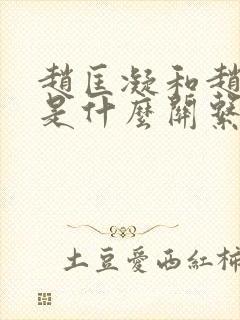 趙匡凝和趙
是什麼關繫
土豆愛西紅柿